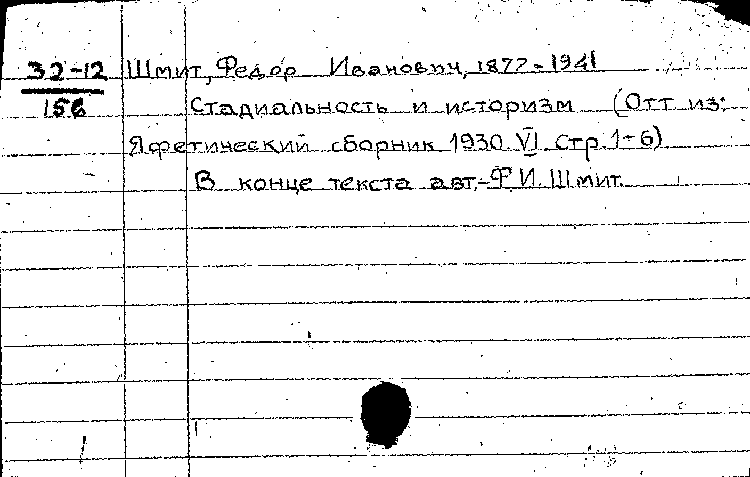 32-12 Шмит, Федор Иванович, 1877-1941
156 Стадиальность и историзм (Отт из:
Яфетический сборник 1930. VI. Стр. 1-6)
В конце текста авт.-Ф.И. Шмит.